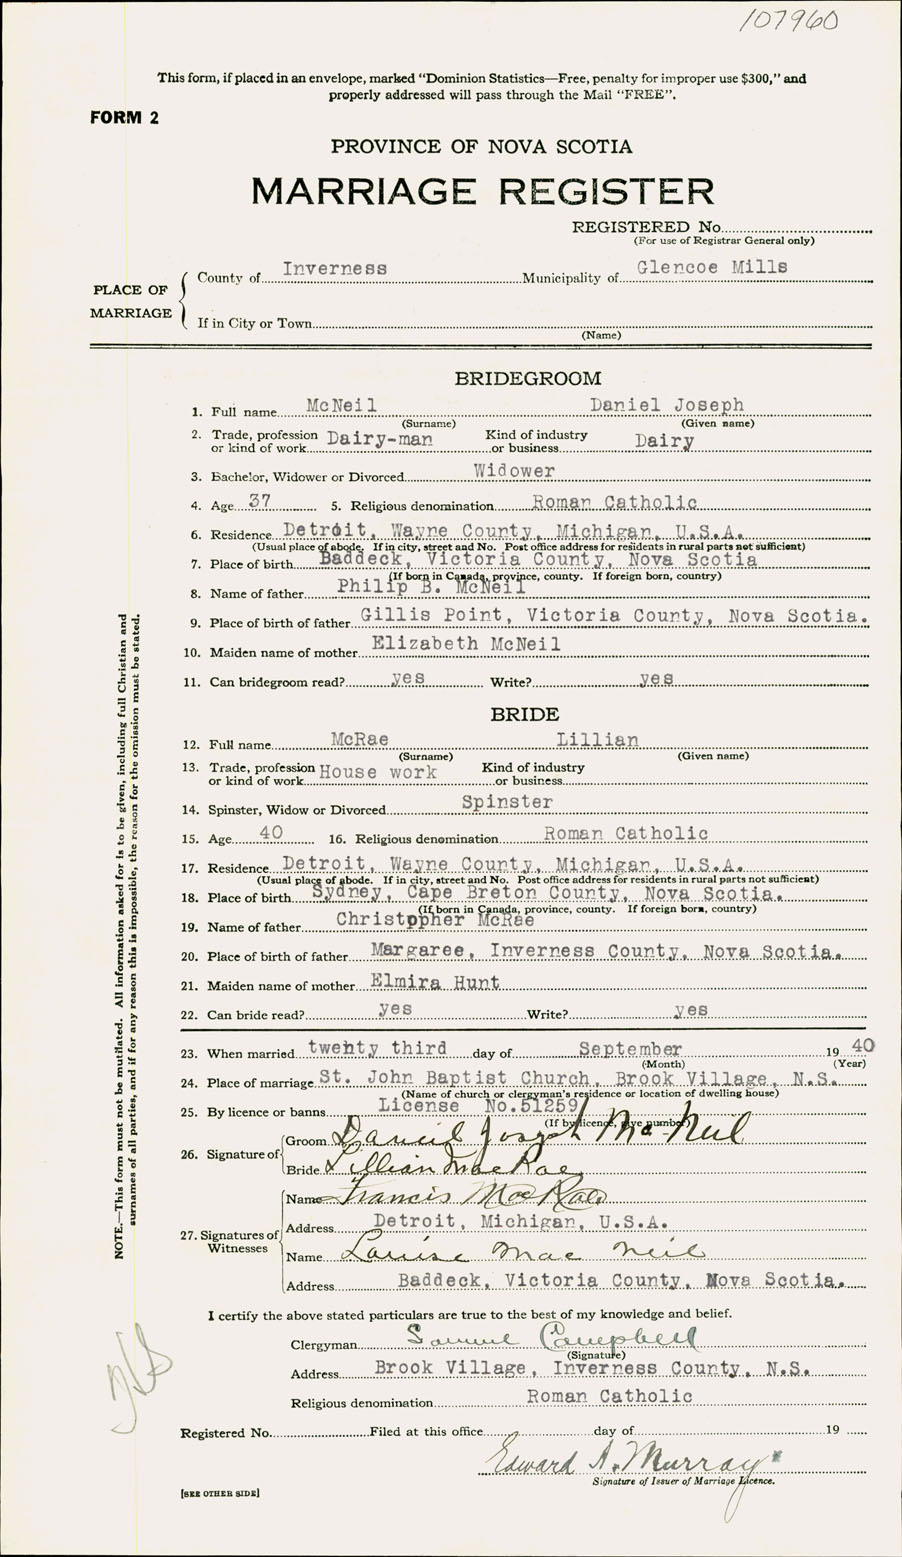 107960
This form, if placed in an envelope, marked “Dominion Statistics—Free, penalty for improper use $300,” and
properly addressed will pass through the Mail “FREE”.
FORM 2
PROVINCE OF NOVA SCOTIA
MARRIAGE REGISTER
REGISTERED No.
(For use of Registrar General only)
PLACE OF MARRIAGE
County of Inverness Municipality of Glencoe Mills
If in City or Town
(Name)
BRIDEGROOM
1. Full name McNeil Daniel Joseph
(Surname) (Given name)
2. Trade, profession or kind of work Dairy-man Kind of industry or business Dairy
3. Bachelor, Widower or Divorced Widower
4. Age 37 5. Religious denomination Roman Catholic
6. Residence Detroit, Wayne County, Michigan, U.S.A.
(Usual place of abode. If in city, street and No. Post office address for residents in rural parts not sufficient)
7. Place of birth Baddeck, Victoria County, Nova Scotia
(If born in Canada, province, county. If foreign born, country)
8. Name of father Philip B. McNeil
9. Place of birth of father Gillis Point, Victoria County, Nova Scotia.
10. Maiden name of mother Elizabeth McNeil
11. Can bridegroom read? yes Write? yes
BRIDE
12. Full name McRae Lillian
(Surname) (Given name)
13. Trade, profession or kind of work House work Kind of industry or business
14. Spinster, Widow or Divorced Spinster
15. Age 40 16. Religious denomination Roman Catholic
17. Residence Detroit, Wayne County, Michigan, U.S.A.
(Usual place of abode. If in city, street and No. Post office address for residents in rural parts not sufficient)
18. Place of birth Sydney, Cape Breton County, Nova Scotia.
(If born in Canada, province, county. If foreign born, country)
19. Name of father Christopher McRae
20. Place of birth of father Margaree, Inverness County, Nova Scotia.
21. Maiden name of mother Elmira Hunt
22. Can bride read? yes Write? yes
23. When married twenty third day of September 19 40
(Month) (Year)
24. Place of marriage St. John Baptist Church, Brook Village, N.S.
(Name of church or clergyman's residence or location of dwelling house)
25. By licence or banns License No.51259
(If by licence, give number)
26. Signature of
Groom Daniel Joseph Mc Neil
Bride Lillian Mac Rae
27. Signatures of Witnesses
Name Francis MacRae
Address Detroit, Michigan, U.S.A.
Name Louise Mac Neil
Address Baddeck, Victoria County, Nova Scotia.
I certify the above stated particulars are true to the best of my knowledge and belief.
Clergyman Samuel Campbell
(Signature)
Address Brook Village, Inverness County, N.S.
Religious denomination Roman Catholic
Registered No. Filed at this office day of 19
Edward A. Murray
Signature of Issuer of Marriage Licence.
[SEE OTHER SIDE]
NOTE.—This form must not be mutilated. All information asked for is to be given, including full Christian and
surnames of all parties, and if for any reason this is impossible, the reason for the omission must be stated.